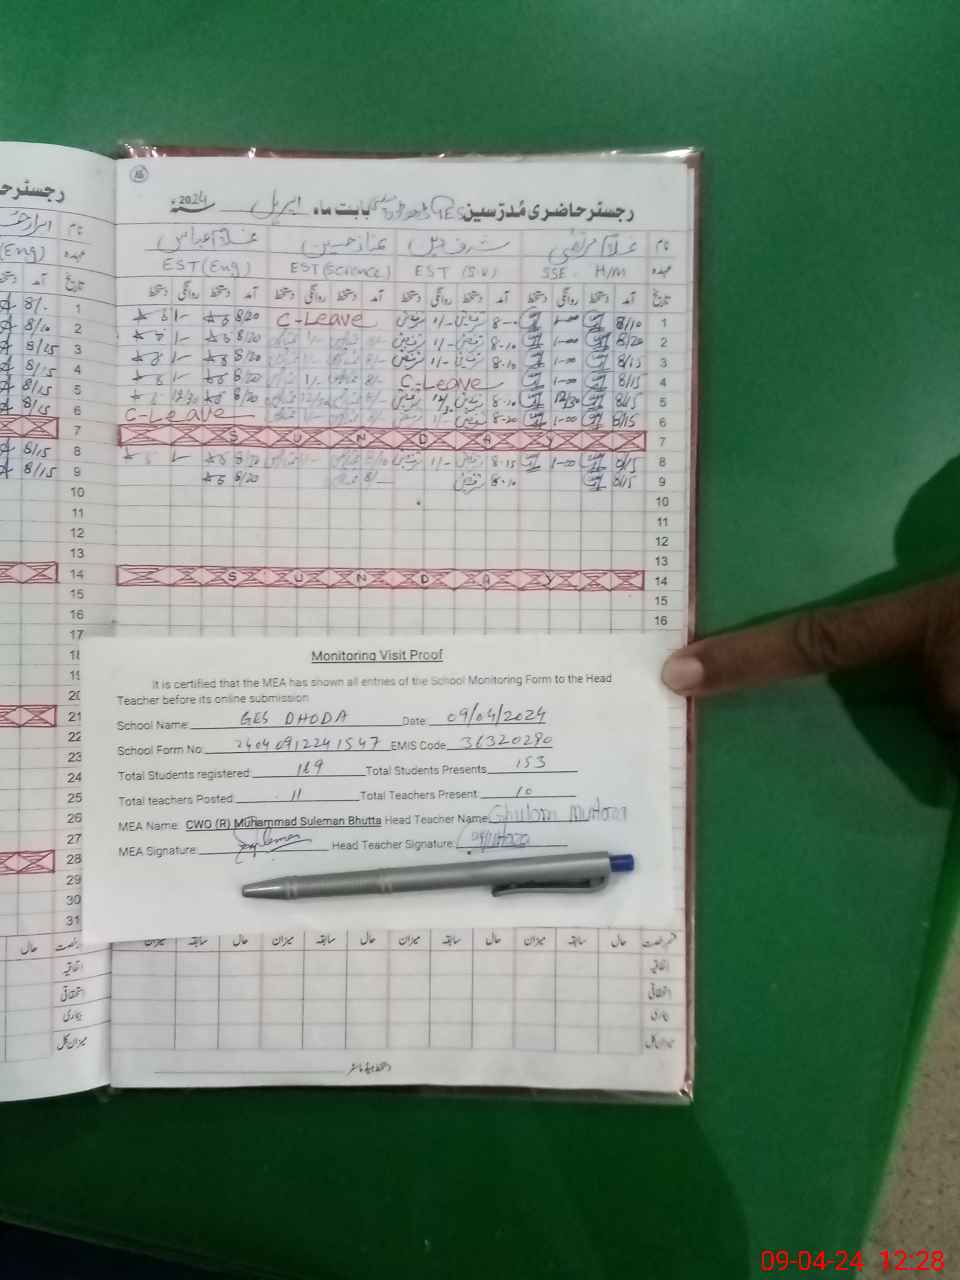 رجسٹر حاضری مُدرّسین GES ڈھوڈہ بابت ماہ اپریل 2024ء
نام غلام مرتضیٰ شرف دین ممتاز حسین غلام عباس
عہدہ SSE. H/M EST (S.V) EST (Science) EST (Eng)
تاریخ آمد دستخط روانگی دستخط آمد دستخط روانگی دستخط آمد دستخط روانگی دستخط آمد دستخط روانگی دستخط
1 8/10 1-00 8-00 1/- C-Leave 8/20 1-
2 8/20 1-00 8-10 1/- 8/- 1/- 8/20 1-
3 8/15 1-00 8-10 1/- 8/- 8/20 1-
4 8/15 1-00 C-Leave 8/- 1/- 8/20 1-
5 8/15 12/30 8-10 12/30 8/- 12/30 8/20 12/30
6 8/15 1-00 8-20 1/- 8/- C-Leave
7 SUNDAY
8 8/15 1-00 8-15 1/- 8/10 8/20 1-
9 8/15 8-10 8/- 8/20
10
11
12
13
14 SUNDAY
15
16
رجسٹر
نام
(Eng) عہدہ
آمد تاریخ
8/- 1
8/10 2
8/15 3
8/15 4
8/15 5
8/15 6
7
8/15 8
8/15 9
10
11
12
13
14
15
16
17
18
19
20
21
22
23
24
25
26
27
28
29
30
31
Monitoring Visit Proof
It is certified that the MEA has shown all entries of the School Monitoring Form to the Head
Teacher before its online submission
School Name: GES DHODA Date: 09/04/2024
School Form No: 24040912241547 EMIS Code 36320290
Total Students registered: 169 Total Students Presents 153
Total teachers Posted: 11 Total Teachers Present: 10
MEA Name: CWO (R) Muhammad Suleman Bhutta Head Teacher Name: Ghulam Murtaza
MEA Signature: Head Teacher Signature:
قسم رخصت حال سابقہ میزان حال سابقہ میزان حال سابقہ میزان حال سابقہ میزان
اتفاقیہ
استحقاقی
بیماری
میزان کل
حال رخصت
اتفاقیہ
استحقاقی
بیماری
میزان کل
دستخط ہیڈ ماسٹر
09-04-24 12:28